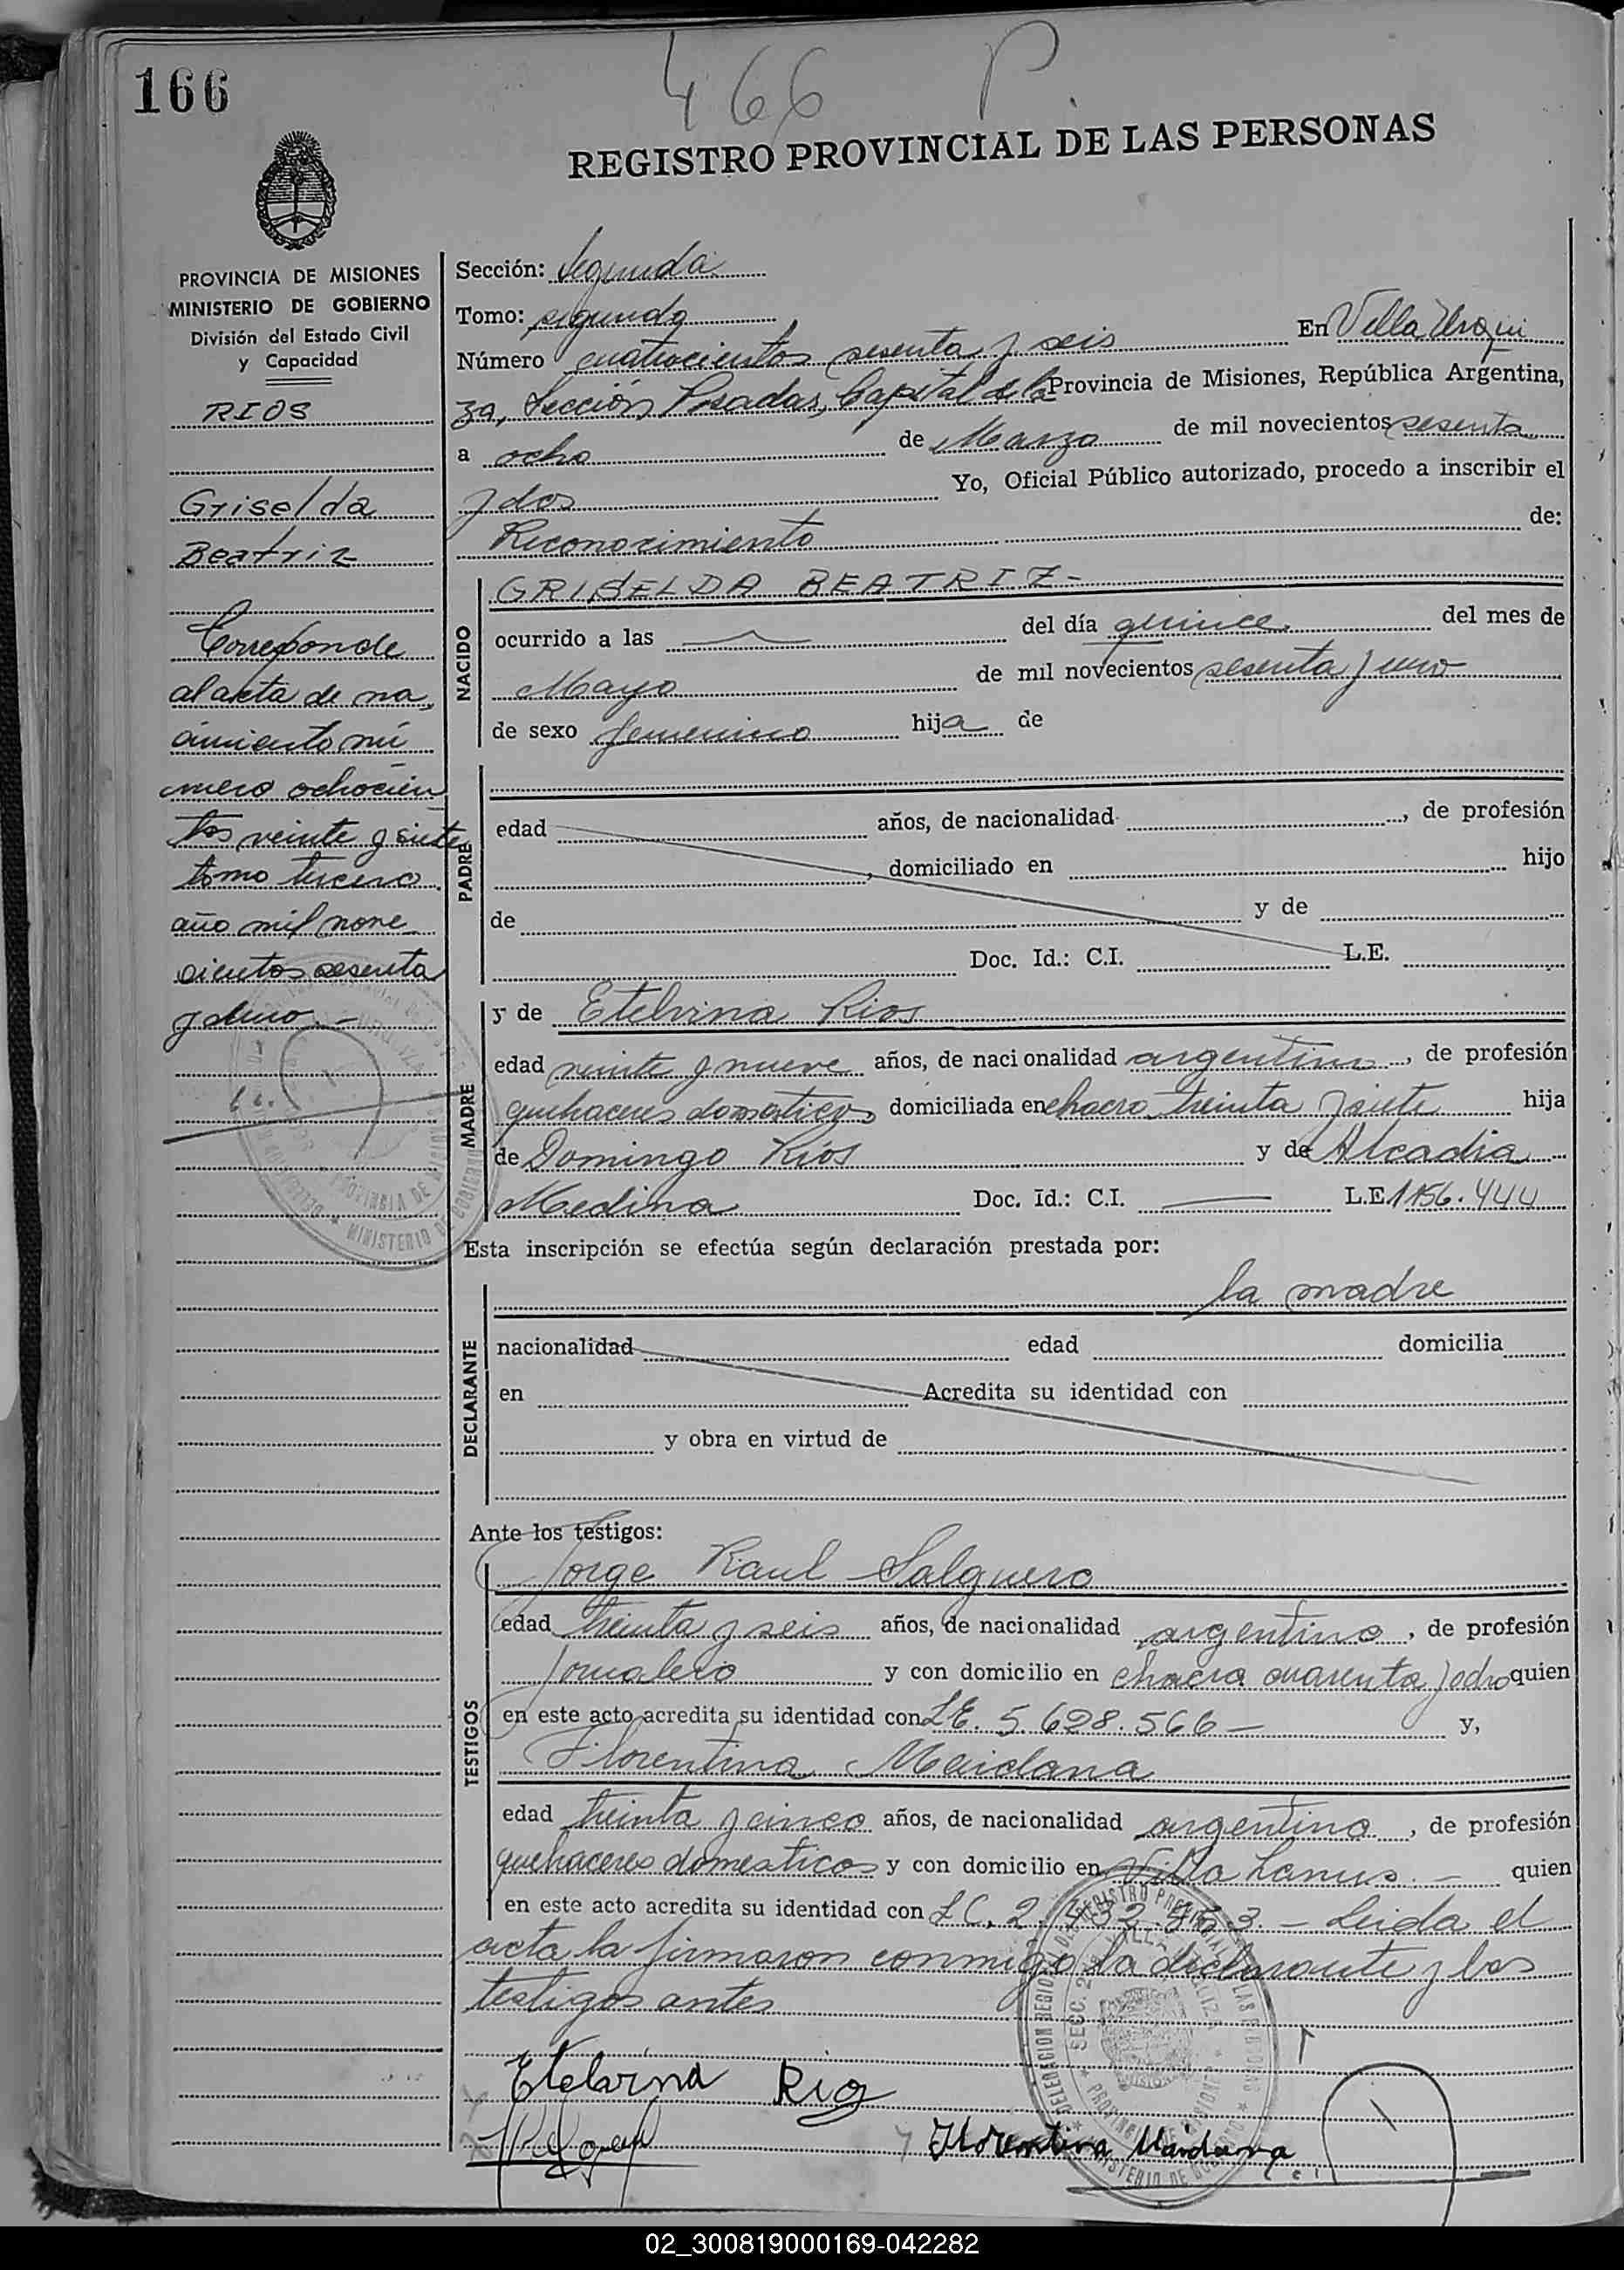 166
466 P.
REGISTRO PROVINCIAL DE LAS PERSONAS
PROVINCIA DE MISIONES
MINISTERIO DE GOBIERNO
División del Estado Civil
y Capacidad
RIOS
Griselda
Beatriz
Corresponde
al acta de na
cimiento nú
mero ochocien
tos veinte y siete
tomo tercero
año mil nove
cientos sesenta
y uno.-
Sección: Segunda
Tomo: segundo
Número cuatrocientos sesenta y seis En Villa Urqui
za, Sección, Posadas, Capital de la Provincia de Misiones, República Argentina,
a ocho de Marzo de mil novecientos sesenta
y dos Yo, Oficial Público autorizado, procedo a inscribir el
Reconocimiento de:
NACIDO
GRISELDA BEATRIZ-
ocurrido a las del día quince del mes de
Mayo de mil novecientos sesenta y uno
de sexo femenino hija de
PADRE
edad años, de nacionalidad , de profesión
, domiciliado en hijo
de y de
Doc. Id.: C.I. L.E.
MADRE
y de Etelvina Rios
edad veinte y nueve años, de nacionalidad argentina, de profesión
quehaceres domesticos domiciliada en chacra treinta y siete hija
de Domingo Ríos y de Alcadia
Medina Doc. Id.: C.I. L.E 1156.444
Esta inscripción se efectúa según declaración prestada por:
DECLARANTE
la madre
nacionalidad edad domicilia
en Acredita su identidad con
y obra en virtud de
Ante los testigos:
TESTIGOS
Jorge Raul Salguero
edad treinta y seis años, de nacionalidad argentino, de profesión
Jornalero y con domicilio en chacra cuarenta y ocho quien
en este acto acredita su identidad con L.E. 5.628.566- y,
Florentina Maidana
edad treinta y cinco años, de nacionalidad argentina, de profesión
quehaceres domesticos y con domicilio en Villa Lanus.- quien
en este acto acredita su identidad con L.C. 2. - Leida el
acta la firmaron conmigo la declarante y los
testigos antes
Etelvina Rio
Florentina Maidana
02_300819000169-042282